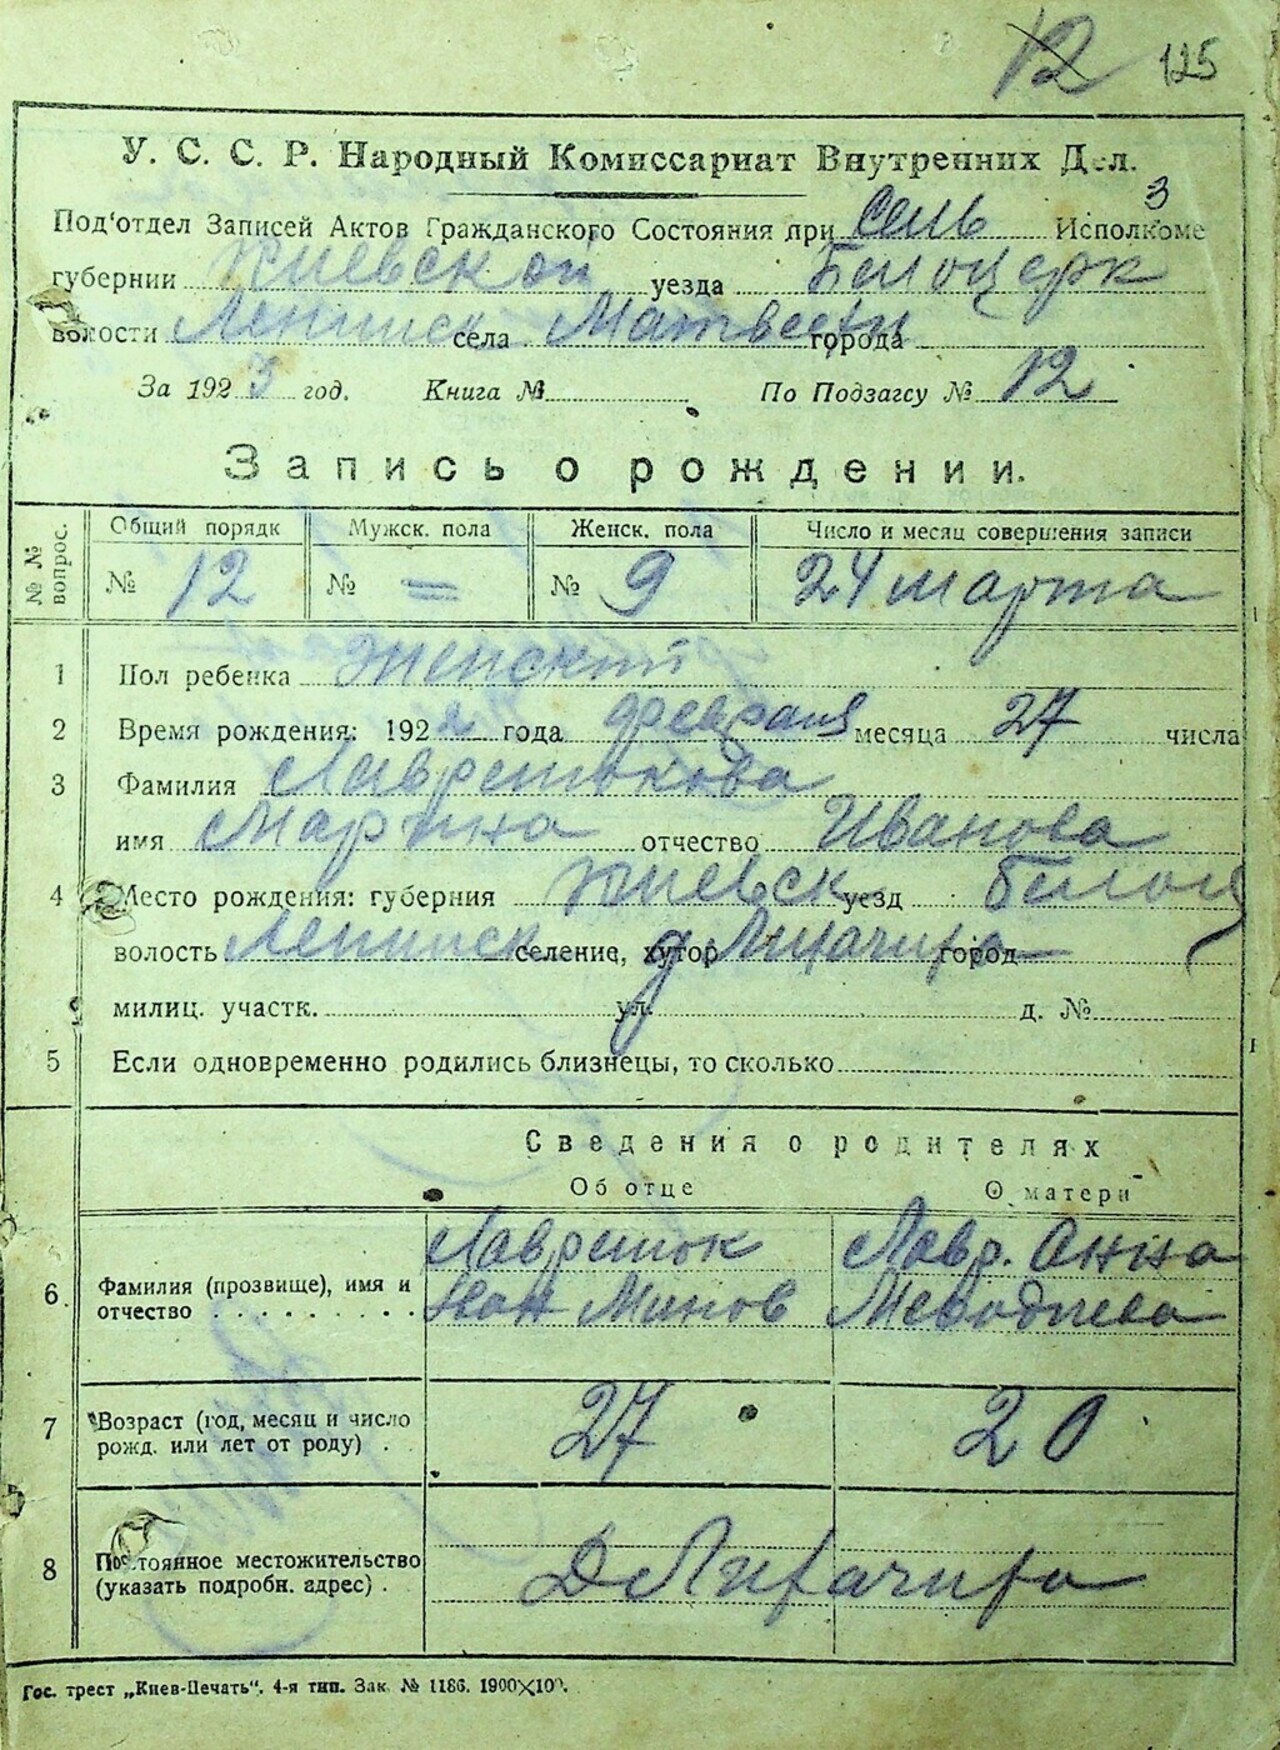 12 125
У. С. С. Р. Народный Комиссариат Внутренних Дел.
Под‘отдел Записей Актов Гражданского Состояния при Сель Исполкоме 3
губернии Киевской уезда Белоцерк
волости Ленинск села Матвеехи города
За 1923 год. Книга № По Подзагсу № 12
Запись о рождении.
№ № вопрос.
Общий порядк Мужск. пола Женск. пола Число и месяц совершения записи
№ 12 № = № 9 24 марта
1 Пол ребенка женский
2 Время рождения: 1922 года февраля месяца 27 числа
3 Фамилия
имя отчество Иванова
4 Место рождения: губерния Киевск уезд Белоц
волость Ленинск селение, хутор д город
милиц. участк. ул. д. №
5 Если одновременно родились близнецы, то сколько
Сведения о родителях
Об отце О матери
6 Фамилия (прозвище), имя и отчество
Лавренюк Лавр. Анна
Иван Минов Меводиева
7 Возраст (год, месяц и число рожд. или лет от роду) . 27 20
8 Постоянное местожительство (указать подробн. адрес) . Д
Гос. трест „Киев-Печать“. 4-я тип. Зак. № 1186. 1900×100.